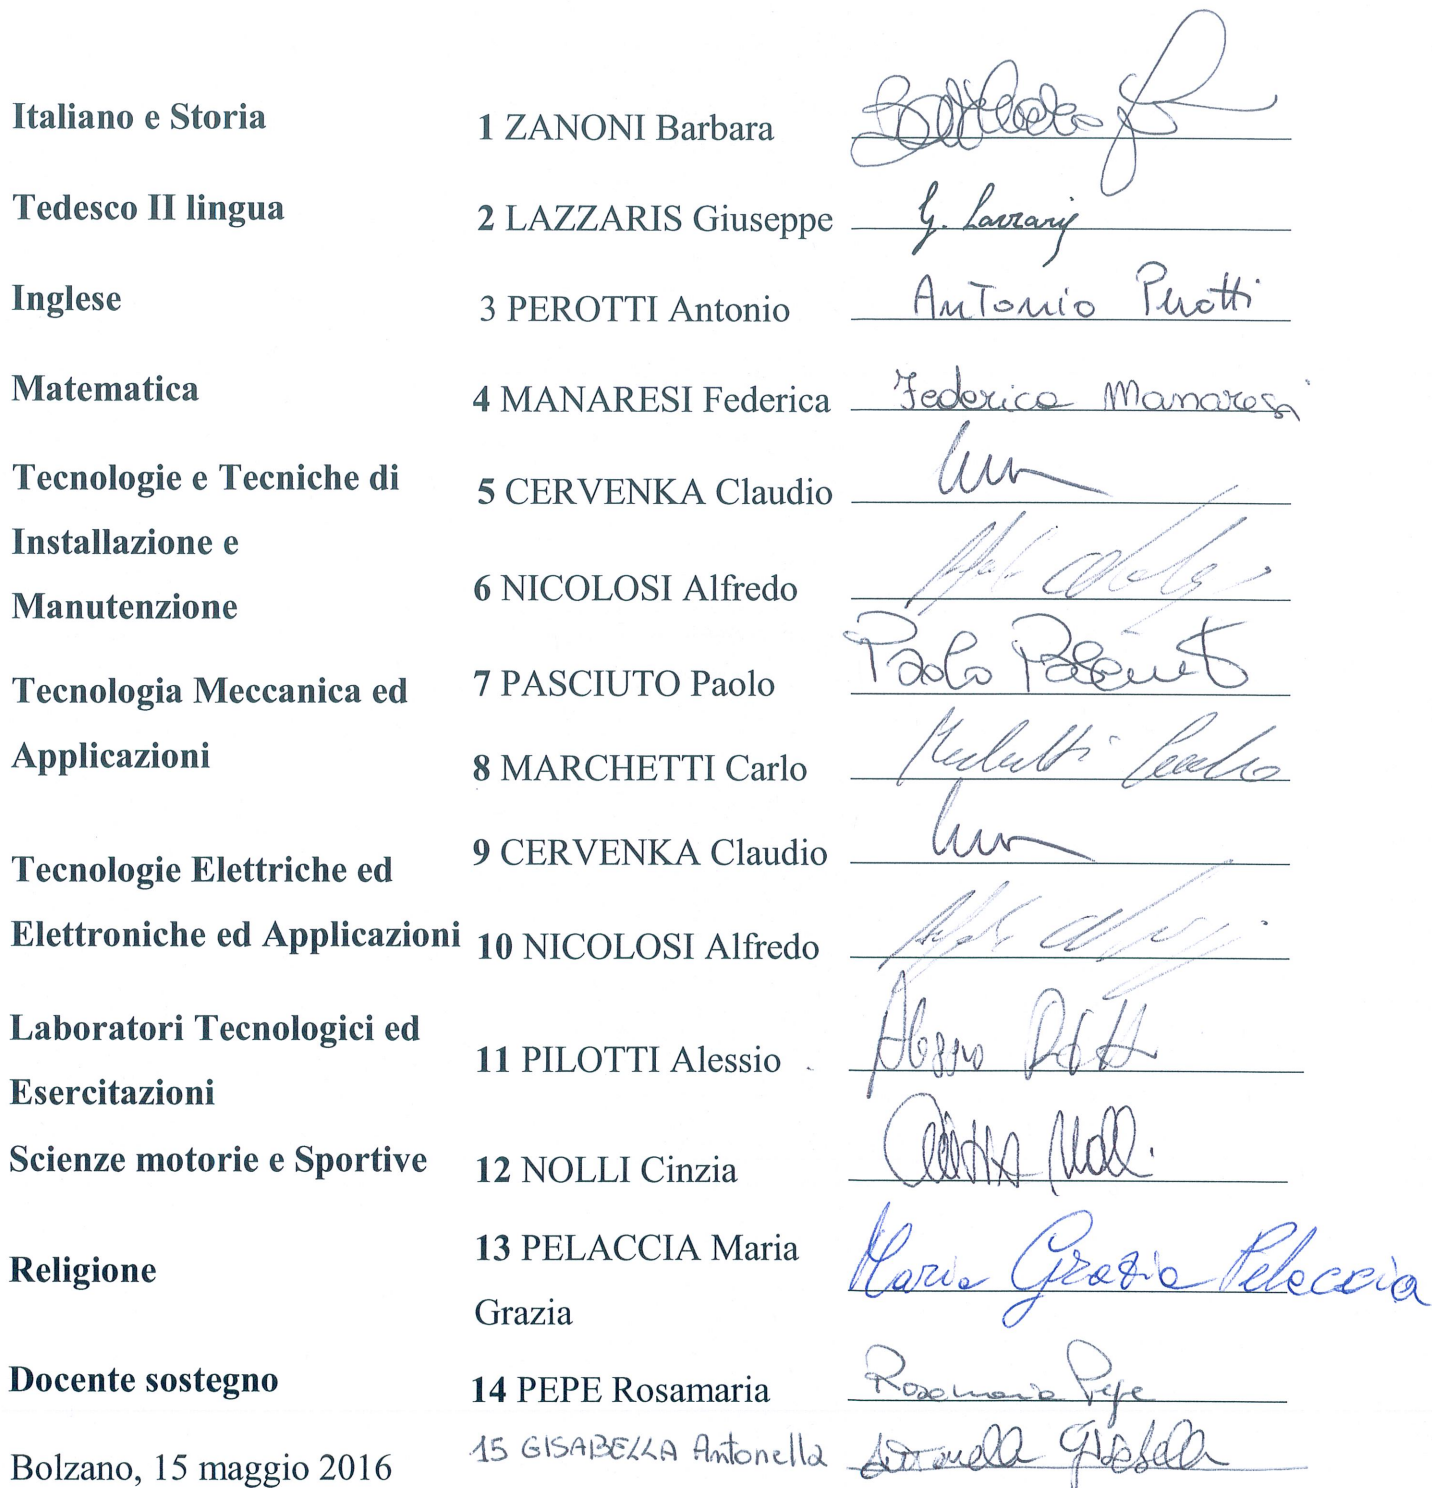 Italiano e Storia 1 ZANONI Barbara
Tedesco II lingua 2 LAZZARIS Giuseppe G. Lazzaris
Inglese 3 PEROTTI Antonio Antonio Perotti
Matematica 4 MANARESI Federica Federica Manaresi
Tecnologie e Tecniche di 5 CERVENKA Claudio
Installazione e
Manutenzione 6 NICOLOSI Alfredo
Tecnologia Meccanica ed 7 PASCIUTO Paolo Paolo Pasciuto
Applicazioni 8 MARCHETTI Carlo Marchetti Carlo
Tecnologie Elettriche ed 9 CERVENKA Claudio
Elettroniche ed Applicazioni 10 NICOLOSI Alfredo
Laboratori Tecnologici ed 11 PILOTTI Alessio Alessio Pilotti
Esercitazioni
Scienze motorie e Sportive 12 NOLLI Cinzia Cinzia Nolli
Religione 13 PELACCIA Maria Maria Grazia Pelaccia
Grazia
Docente sostegno 14 PEPE Rosamaria Rosamaria Pepe
Bolzano, 15 maggio 2016 15 GISABELLA Antonella Antonella Gisabella